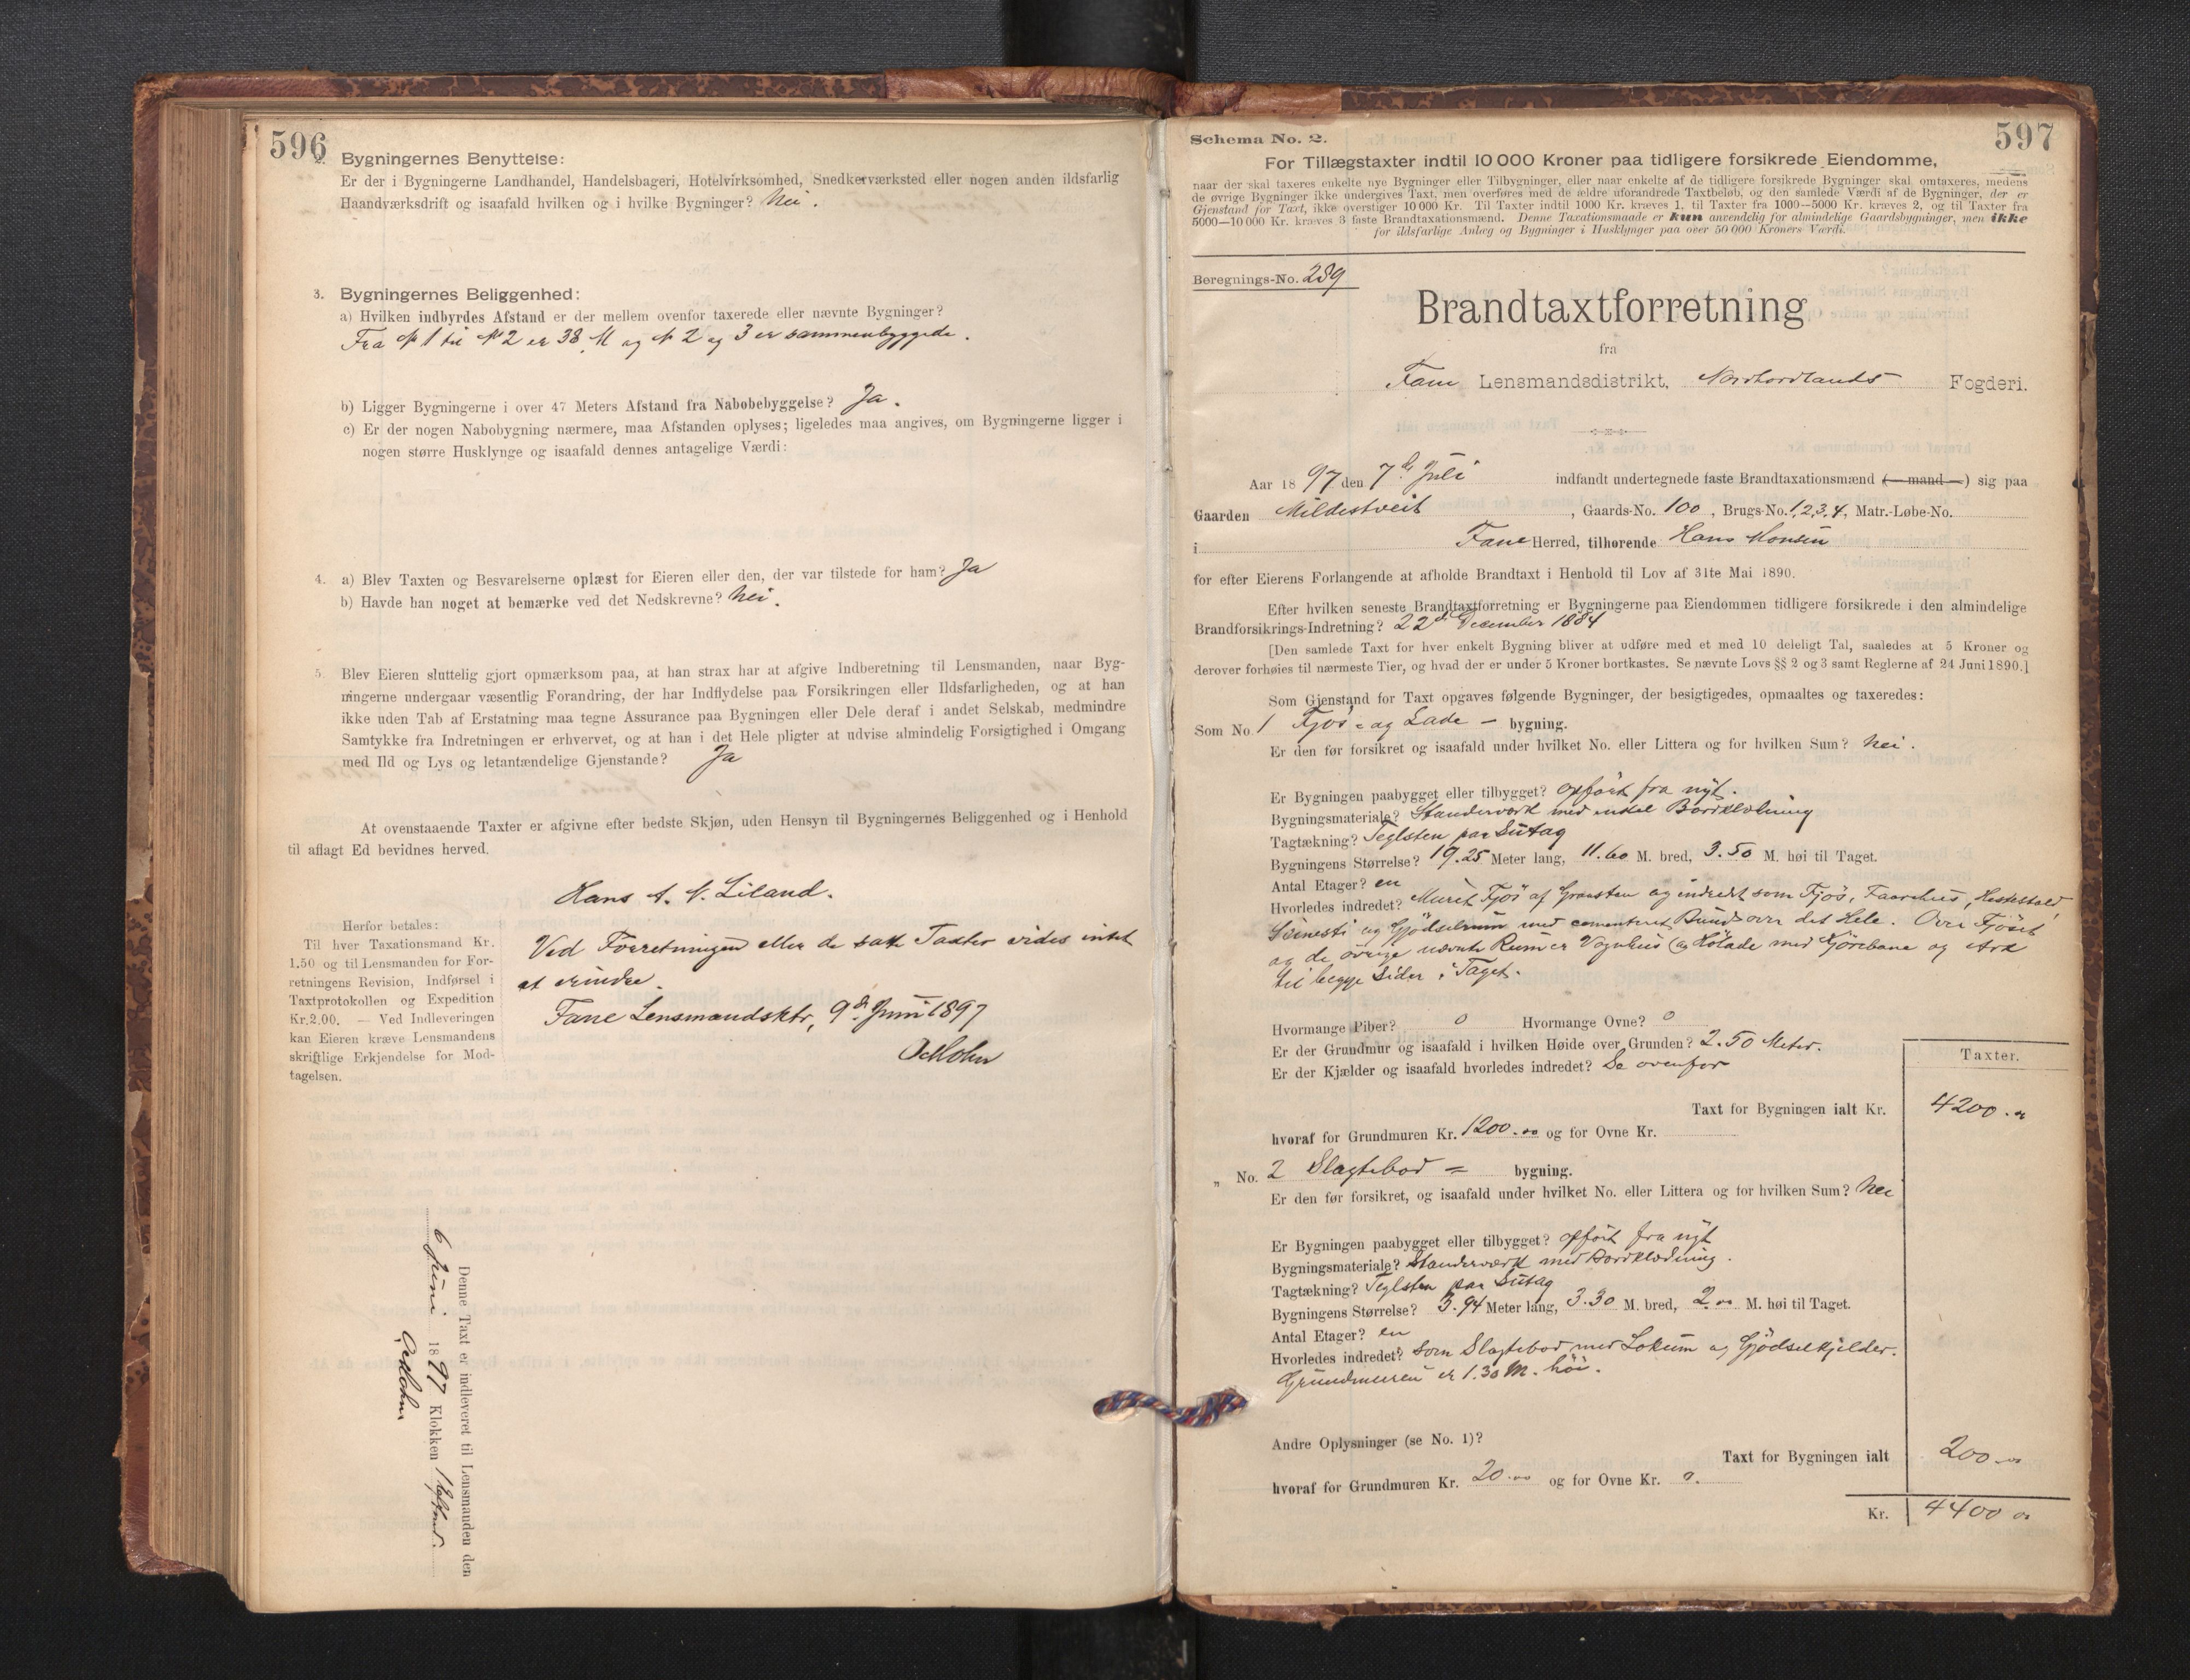 596
2. Bygningernes Benyttelse:
Er der i Bygningerne Landhandel, Handelsbageri, Hotelvirksomhed, Snedkerværksted eller nogen anden ildsfarlig
Haandværksdrift og isaafald hvilken og i hvilke Bygninger? Nei.
3. Bygningernes Beliggenhed:
a) Hvilken indbyrdes Afstand er der mellem ovenfor taxerede eller nævnte Bygninger?
Fra № 1 til № 2 er 38 M og № 2 og 3 er sammenbyggede.
b) Ligger Bygningerne i over 47 Meters Afstand fra Nabobebyggelse? Ja.
c) Er der nogen Nabobygning nærmere, maa Afstanden oplyses; ligeledes maa angives, om Bygningerne ligger i
nogen større Husklynge og isaafald dennes antagelige Værdi:
4. a) Blev Taxten og Besvarelserne oplæst for Eieren eller den, der var tilstede for ham? Ja
b) Havde han noget at bemærke ved det Nedskrevne? Nei.
5. Blev Eieren sluttelig gjort opmærksom paa, at han strax har at afgive Indberetning til Lensmanden, naar Byg-
ningerne undergaar væsentlig Forandring, der har Indflydelse paa Forsikringen eller Ildsfarligheden, og at han
ikke uden Tab af Erstatning maa tegne Assurance paa Bygningen eller Dele deraf i andet Selskab, medmindre
Samtykke fra Indretningen er erhvervet, og at han i det Hele pligter at udvise almindelig Forsigtighed i Omgang
med Ild og Lys og letantændelige Gjenstande? Ja
At ovenstaaende Taxter er afgivne efter bedste Skjøn, uden Hensyn til Bygningernes Beliggenhed og i Henhold
til aflagt Ed bevidnes herved.
Hans A. N. Liland.
Herfor betales:
Til hver Taxationsmand Kr.
1.50 og til Lensmanden for For-
retningens Revision, Indførsel i
Taxtprotokollen og Expedition
Kr. 2.00. — Ved Indleveringen
kan Eieren kræve Lensmandens
skriftlige Erkjendelse for Mod-
tagelsen.
Ved Forretningen eller de satte Taxter vides intet
at erindre.
Fane Lensmandsktr, 9de Juni 1897
Denne Taxt er indleveret til Lensmanden den
6 Juni 1897 Klokken
597
Schema No. 2.
For Tillægstaxter indtil 10 000 Kroner paa tidligere forsikrede Eiendomme,
naar der skal taxeres enkelte nye Bygninger eller Tilbygninger, eller naar enkelte af de tidligere forsikrede Bygninger skal omtaxeres, medens
de øvrige Bygninger ikke undergives Taxt, men overføres med de ældre uforandrede Taxtbeløb, og den samlede Værdi af de Bygninger, der er
Gjenstand for Taxt, ikke overstiger 10 000 Kr. Til Taxter indtil 1000 Kr. kræves 1, til Taxter fra 1000—5000 Kr. kræves 2, og til Taxter fra
5000—10 000 Kr. kræves 3 faste Brandtaxationsmænd. Denne Taxationsmaade er kun anvendelig for almindelige Gaardsbygninger, men ikke
for ildsfarlige Anlæg og Bygninger i Husklynger paa over 50 000 Kroners Værdi.
Beregnings-No. 289
Brandtaxtforretning
fra
Fane Lensmandsdistrikt, Nordhordlands Fogderi.
Aar 1897 den 7de Juli indfandt undertegnede faste Brandtaxationsmænd (—mand—) sig paa
Gaarden Mildestveit, Gaards-No. 100, Brugs-No. 1,2,3,4, Matr.-Løbe-No.
i Fane Herred, tilhørende Hans Monsen
for efter Eierens Forlangende at afholde Brandtaxt i Henhold til Lov af 31te Mai 1890.
Efter hvilken seneste Brandtaxtforretning er Bygningerne paa Eiendommen tidligere forsikrede i den almindelige
Brandforsikrings-Indretning? 22de December 1884
[Den samlede Taxt for hver enkelt Bygning bliver at udføre med et med 10 deleligt Tal, saaledes at 5 Kroner og
derover forhøies til nærmeste Tier, og hvad der er under 5 Kroner bortkastes. Se nævnte Lovs §§ 2 og 3 samt Reglerne af 24 Juni 1890.]
Som Gjenstand for Taxt opgaves følgende Bygninger, der besigtigedes, opmaaltes og taxeredes:
Som No 1 Fjös- og Lade- bygning.
Er den før forsikret og isaafald under hvilket No. eller Littera og for hvilken Sum? Nei.
Er Bygningen paabygget eller tilbygget? opfört fra nyt.
Bygningsmateriale? Standerværk med enkel Bordklædning
Tagtækning? Teglsten paa Sutag
Bygningens Størrelse? 19.25 Meter lang, 11.60 M. bred, 3.50 M. høi til Taget.
Antal Etager? en
Hvorledes indredet? Muret Fjös af Graasten og indredet som Fjös, Faarehus, Hestestald,
Svinesti og Gjödselrum med cementeret Bund over det Hele. Over Fjöset
og de övrige nævnte Rum er Vognhus og Hölade med Kjörebane og Ark
til begge Sider i Taget.
Hvormange Piber? 0 Hvormange Ovne? 0
Er der Grundmur og isaafald i hvilken Høide over Grunden? 2.50 Meter.
Er der Kjælder og isaafald hvorledes indredet? Se ovenfor
Taxter.
Taxt for Bygningen ialt Kr. 4200.00
hvoraf for Grundmuren Kr. 1200.00 og for Ovne Kr.
„ No. 2 Slagtebod = bygning.
Er den før forsikret, og isaafald under hvilket No. eller Littera og for hvilken Sum? Nei
Er Bygningen paabygget eller tilbygget? opfört fra nyt
Bygningsmateriale? Standerværk med Bordklædning.
Tagtækning? Teglsten paa Sutag
Bygningens Størrelse? 3.94 Meter lang, 3.30 M. bred, 2.00 M. høi til Taget.
Antal Etager? en
Hvorledes indredet? Som Slagtebod med Lokum og Gjödselkjelder.
Grundmuren er 1.30 M. höi.
Andre Oplysninger (se No. 1)?
Taxt for Bygningen ialt 200.00
hvoraf for Grundmuren Kr. 20.00 og for Ovne Kr. 0.
Kr. 4400 00